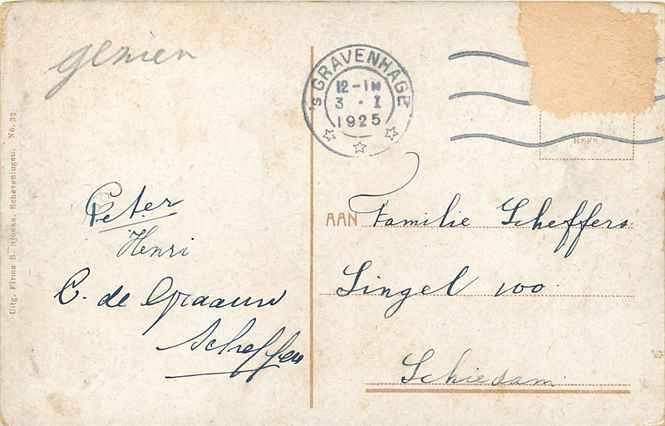 gezien
'S GRAVENHAGE
12-1N
3 · I
1925
Uitg. Firma B. Scheveningen. No. 32
Peter
Henri
C. de Graauw
Scheffers
AAN Familie Scheffers
Singel 100
Schiedam